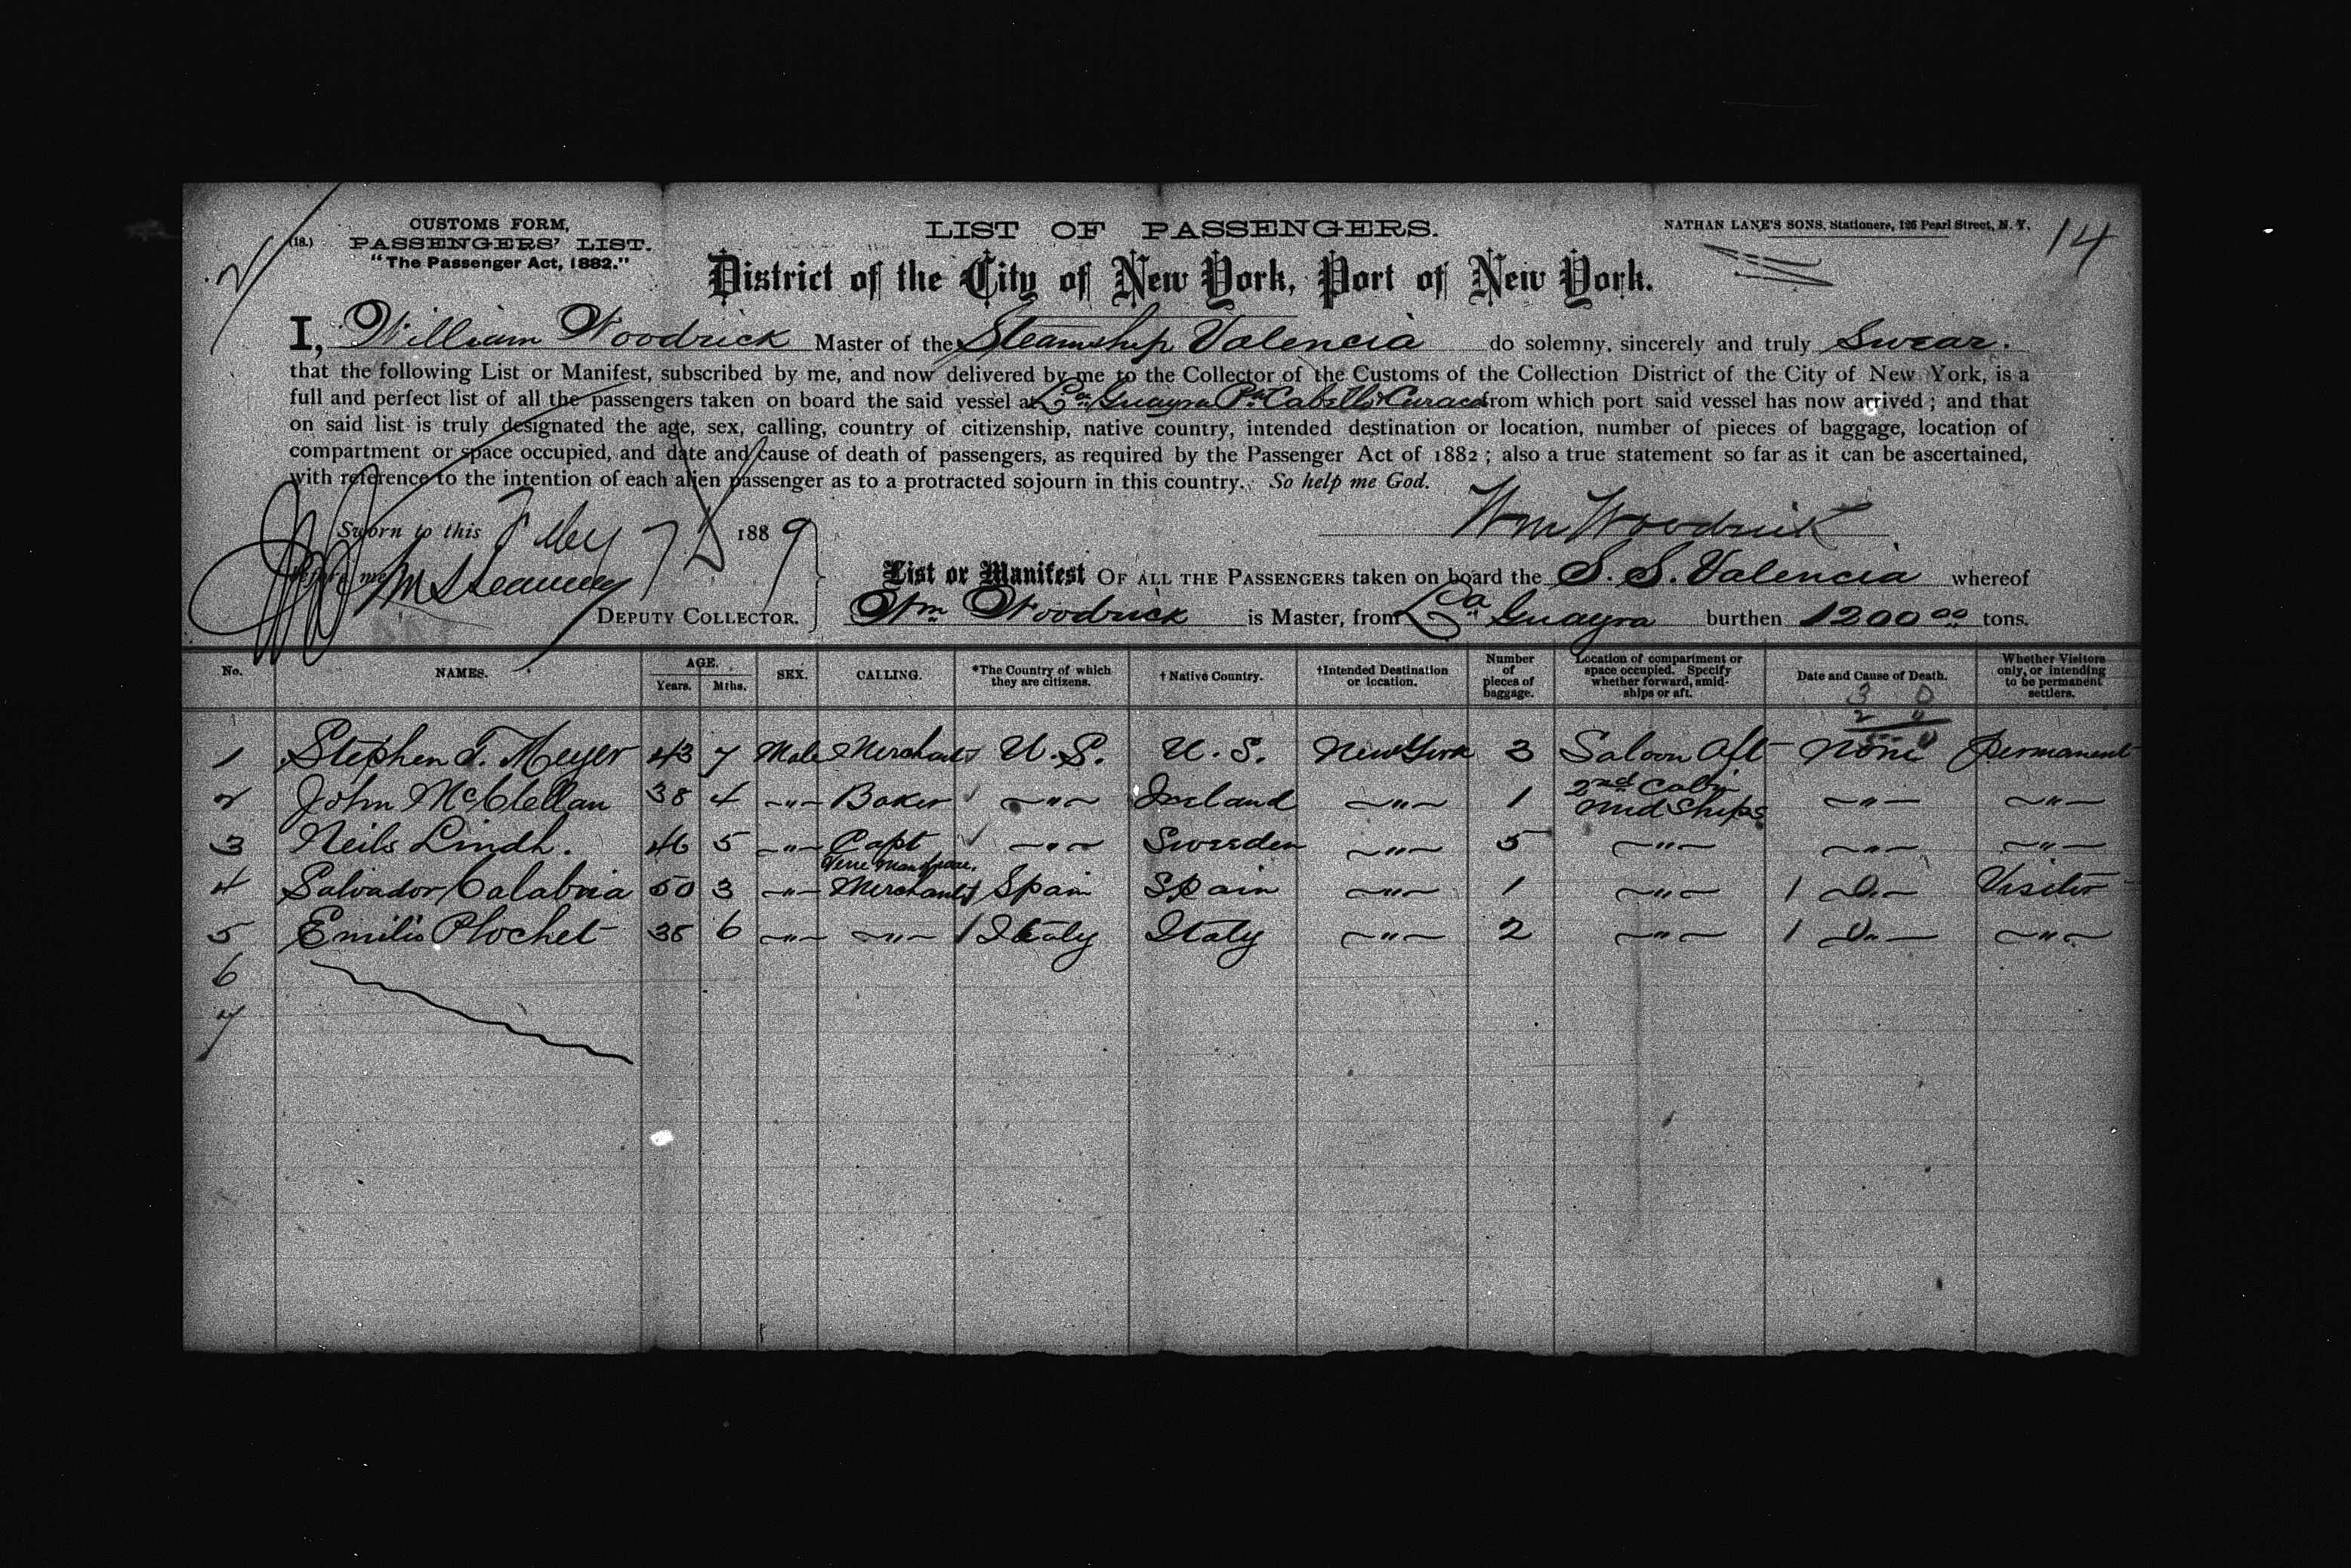 CUSTOMS FORM,
(18.) PASSENGERS' LIST.
"The Passenger Act, 1882."
LIST OF PASSENGERS.
NATHAN LANE'S SONS, Stationers, 126 Pearl Street, N. Y.
14
District of the City of New York, Port of New York.
I, William Woodrick Master of the Steamship Valencia do solemny, sincerely and truly Swear.
that the following List or Manifest, subscribed by me, and now delivered by me to the Collector of the Customs of the Collection District of the City of New York, is a
full and perfect list of all the passengers taken on board the said vessel at La Guayra Pto Cabello Curacao from which port said vessel has now arrived; and that
on said list is truly designated the age, sex, calling, country of citizenship, native country, intended destination or location, number of pieces of baggage, location of
compartment or space occupied, and date and cause of death of passengers, as required by the Passenger Act of 1882; also a true statement so far as it can be ascertained,
with reference to the intention of each alien passenger as to a protracted sojourn in this country. So help me God.
Sworn to this Feby 7 1889
Wm Woodrick
before me
DEPUTY COLLECTOR.
List or Manifest OF ALL THE PASSENGERS taken on board the S. S. Valencia whereof
Wm Woodrick is Master, from La Guayra burthen 1200 00 tons.
No. NAMES. AGE. Years. Mths. SEX. CALLING. *The Country of which they are citizens. † Native Country. †Intended Destination or location. Number of pieces of baggage. Location of compartment or space occupied. Specify whether forward, amidships or aft. Date and Cause of Death. Whether Visitors only, or intending to be permanent settlers.
3 0
2 0
5 0
1 Stephen T. Meyer 43 7 Male Merchant U.S. U.S. New York 3 Saloon Aft None Permanent
2 John McClellan 38 4 —"— Baker —"— Ireland —"— 1 2nd Cabin Mid Ships —"— —"—
3 Neils Lindh. 46 5 —"— Capt —"— Sweeden —"— 5 —"— —"— —"—
4 Salvador Calabria 50 3 —"— Merchant Spain Spain —"— 1 —"— 1 —"— Visitor
5 Emilio Plochet 38 6 —"— —"— Italy Italy —"— 2 —"— 1 —"— —"—
6
7